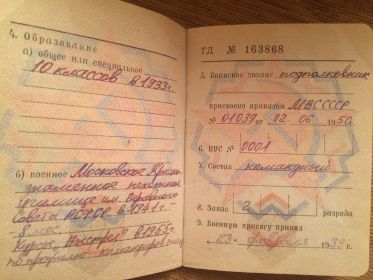 4. Образование
а) общее или специальное
10 классов в 1933 г.
б) военное Московское Красно-
знаменное пехотное
училище им. Верховного
Совета РСФСР в 1941 г.
8 мес.
Курсы „Выстрел" в 1955 г.
по профилю командиров
ГД № 163868
5. Воинское звание подполковник
присвоено приказом МВС СССР
№ 01039 от 02 06 1950 г.
6. ВУС № 0001
7. Состав командный
8. Запас 2 разряда
9. Военную присягу принял
„23" февраля 1939 г.